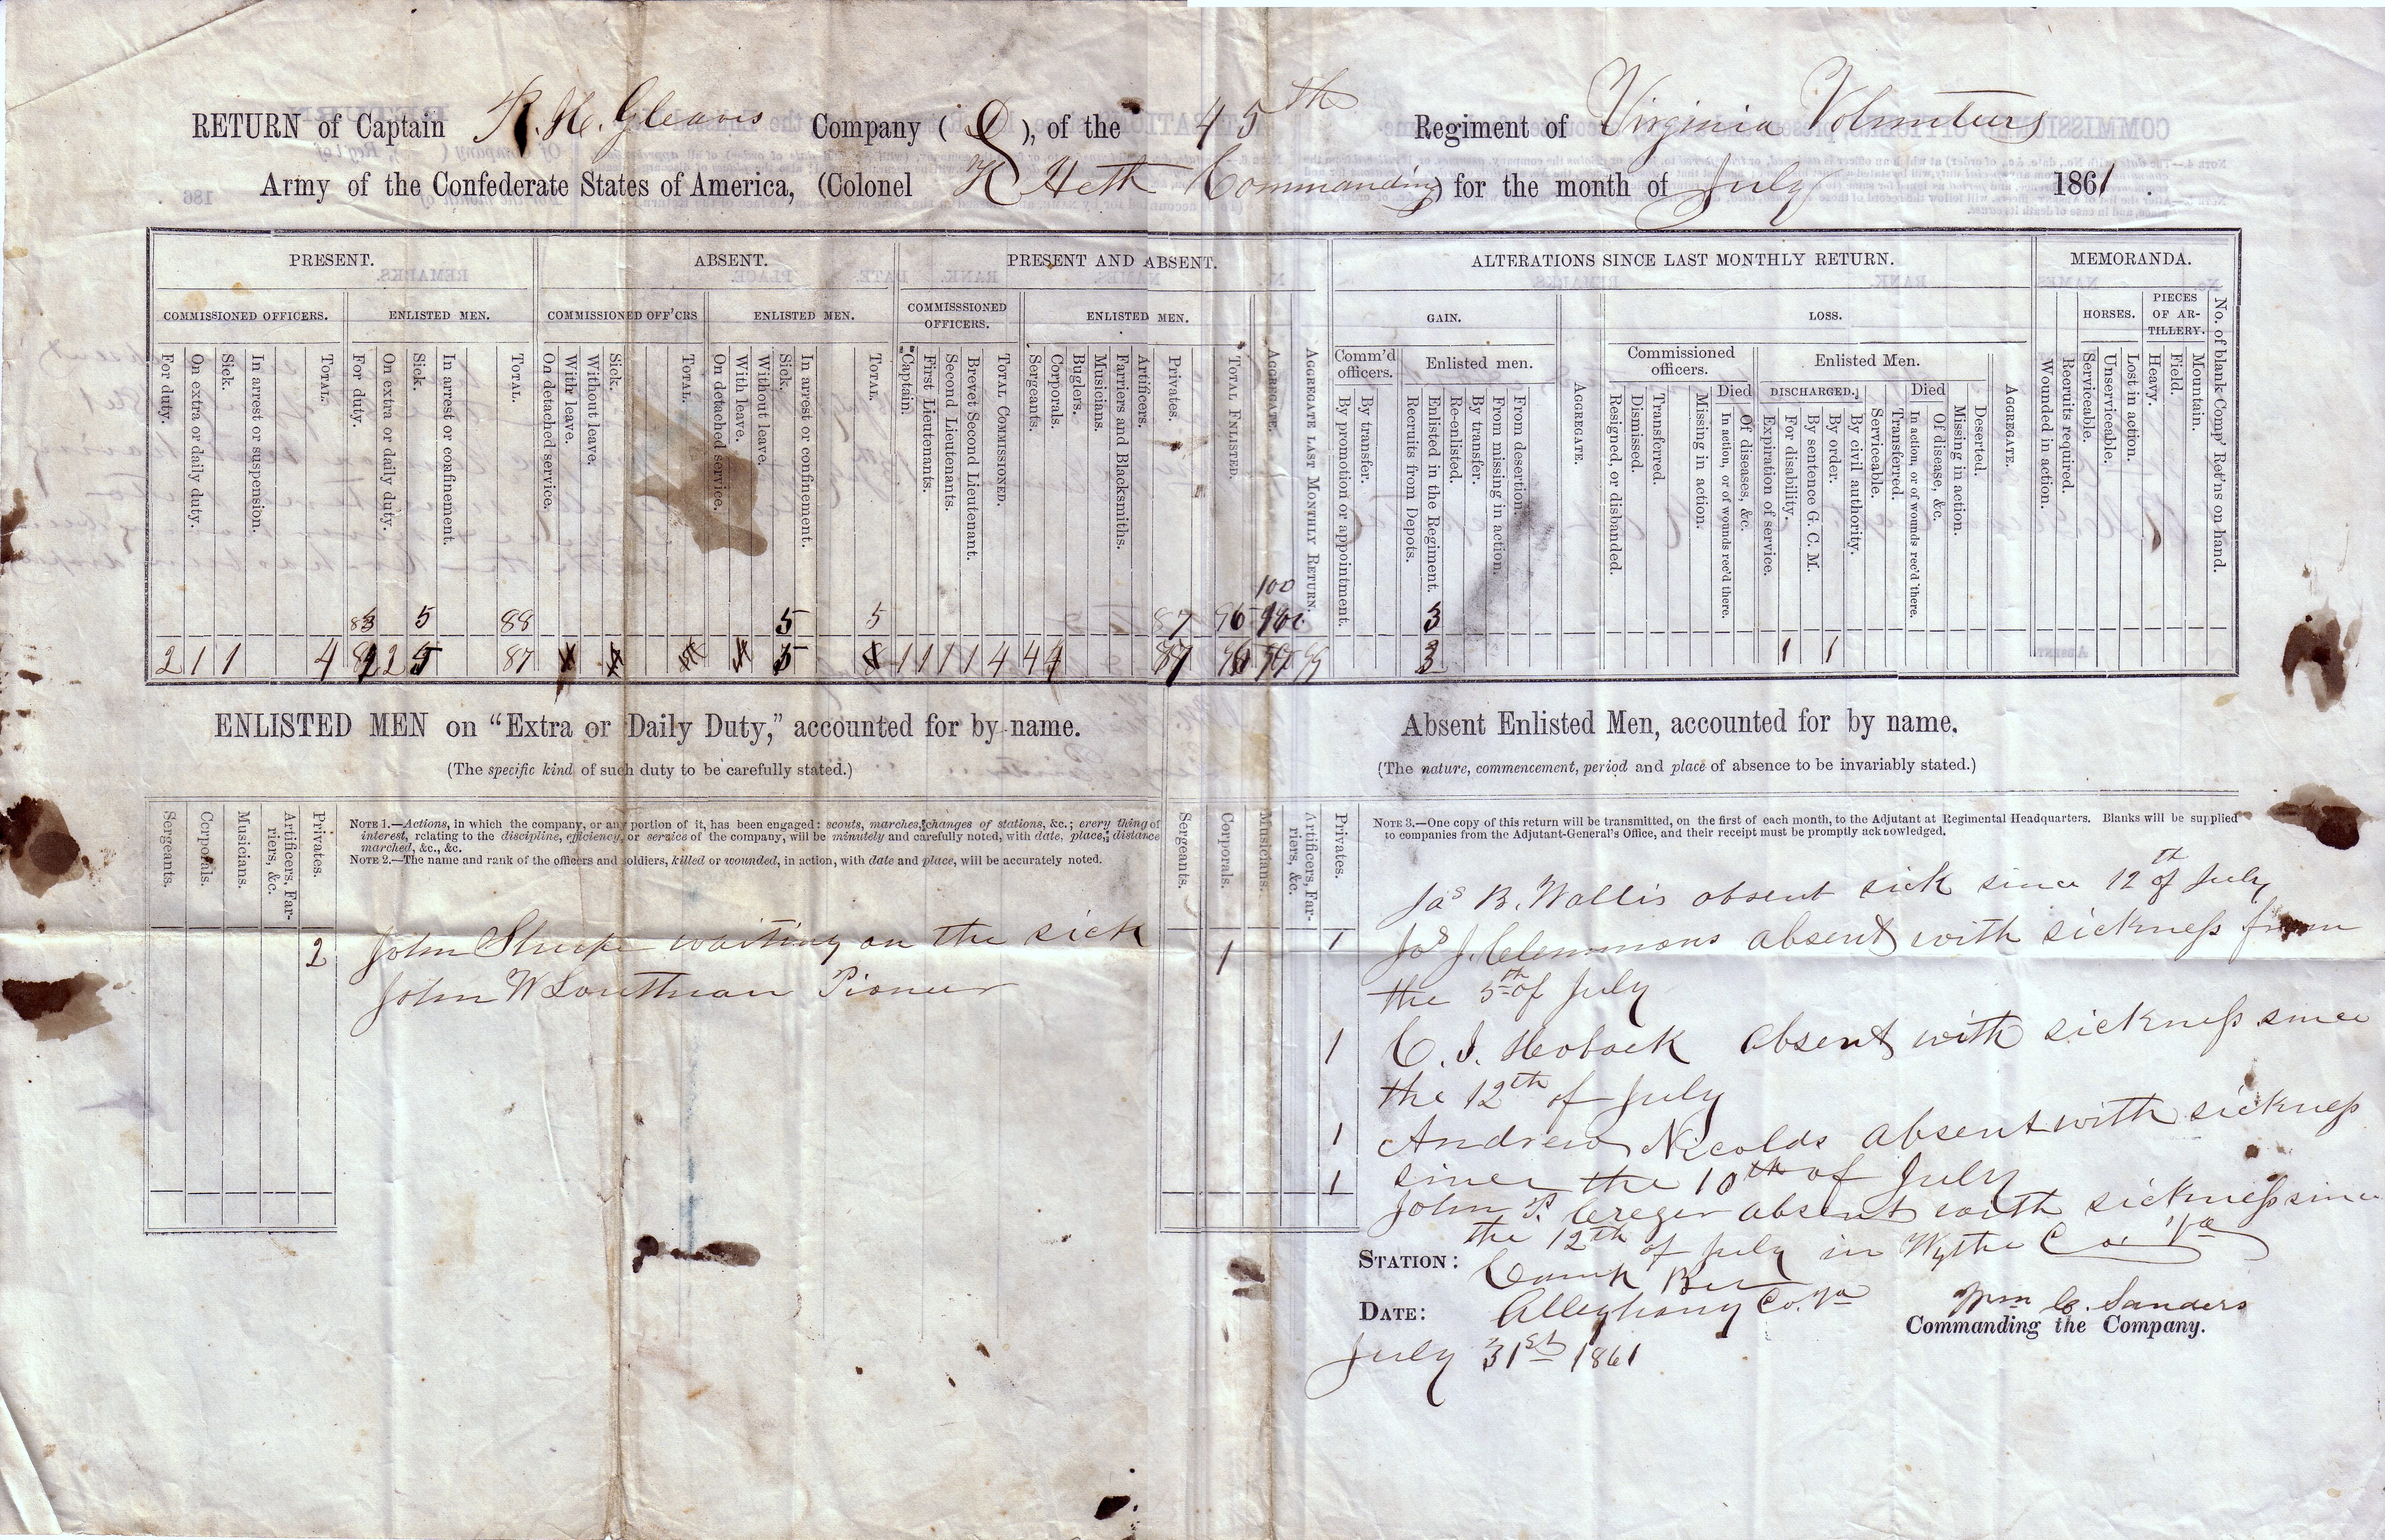 RETURN of Captain R. H. Gleaves Company ( D ), of the 45th Regiment of Virginia Volunteers
Army of the Confederate States of America, (Colonel H Heth Commanding) for the month of July 1861.
PRESENT. ABSENT. PRESENT AND ABSENT. ALTERATIONS SINCE LAST MONTHLY RETURN. MEMORANDA.
COMMISSIONED OFFICERS. ENLISTED MEN. COMMISSIONED OFF'CRS ENLISTED MEN. COMMISSSIONED OFFICERS. ENLISTED MEN. GAIN. LOSS. HORSES. PIECES OF AR-TILLERY.
Comm'd officers. Enlisted men. Commissioned officers. Enlisted Men.
Died DISCHARGED. Died
For duty.
On extra or daily duty.
Sick.
In arrest or suspension.
TOTAL.
For duty.
On extra or daily duty.
Sick.
In arrest or confinement.
TOTAL.
On detached service.
With leave.
Without leave.
Sick.
TOTAL.
On detached service.
With leave.
Without leave.
Sick.
In arrest or confinement.
TOTAL.
Captain.
First Lieutenants.
Second Lieutenants.
Brevet Second Lieutenant.
TOTAL COMMISSIONED.
Sergeants.
Corporals.
Buglers.
Musicians.
Farriers and Blacksmiths.
Artificers.
Privates.
TOTAL ENLISTED.
AGGREGATE.
AGGREGATE LAST MONTHLY RETURN.
By promotion or appointment.
By transfer.
Recruits from Depots.
Enlisted in the Regiment.
Re-enlisted.
By transfer.
From missing in action.
From desertion.
AGGREGATE.
Resigned, or disbanded.
Dismissed.
Transferred.
Missing in action.
In action, or of wounds rec'd there.
Of diseases, &c.
Expiration of service.
For disability.
By sentence G. C. M.
By order.
By civil authority.
Serviceable.
Transferred.
In action, or of wounds rec'd there.
Of disease, &c.
Missing in action.
Deserted.
AGGREGATE.
Wounded in action.
Recruits required.
Serviceable.
Unserviceable.
Lost in action.
Heavy.
Field.
Mountain.
No. of blank Comp' Ret'ns on hand.
100
83 5 88 5 5 87 96 3
2 1 1 4 2 5 87 5 1 1 1 1 4 4 4 87 3 1 1
ENLISTED MEN on "Extra or Daily Duty," accounted for by name.
(The specific kind of such duty to be carefully stated.)
Absent Enlisted Men, accounted for by name.
(The nature, commencement, period and place of absence to be invariably stated.)
Sergeants.
Corporals.
Musicians.
Artificers, Far-riers, &c.
Privates.
NOTE 1.—Actions, in which the company, or any portion of it, has been engaged: scouts, marches, changes of stations, &c.; every thing of
interest, relating to the discipline, efficiency, or service of the company, will be minutely and carefully noted, with date, place, distance
marched, &c., &c.
NOTE 2.—The name and rank of the officers and soldiers, killed or wounded, in action, with date and place, will be accurately noted.
2 John Sharpe waiting on the sick
John W Southman Pioneer
Sergeants.
Corporals.
Musicians.
Artificers, Far-riers, &c.
Privates.
NOTE 3.—One copy of this return will be transmitted, on the first of each month, to the Adjutant at Regimental Headquarters. Blanks will be supplied
to companies from the Adjutant-General's Office, and their receipt must be promptly acknowledged.
1 Jas B. Wallis absent sick since 12th of July
1 Jas J. Clemmons absent with sickness from
the 5th of July
1 C. J. Hoback absent with sickness since
the 12th of July
1 Andrew Nicolds absent with sickness
since the 10th of July
1 John P. Creger absent with sickness since
the 12th of July in Wythe Co. Va
STATION: Camp
Alleghany Co. Va
DATE: July 31st 1861
Wm C. Sanders
Commanding the Company.